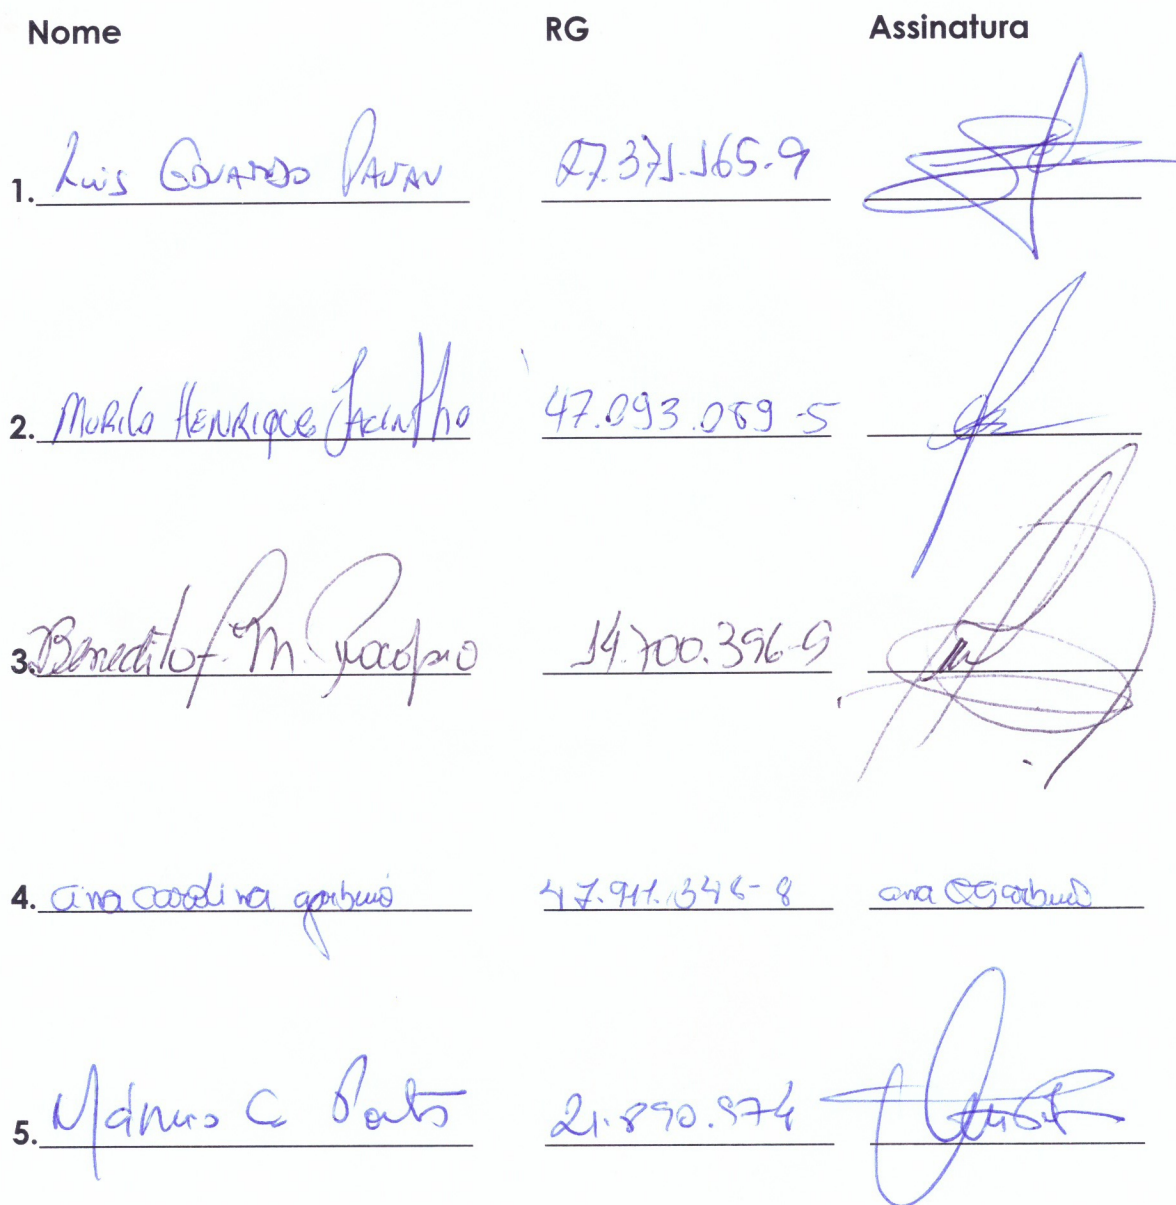 Nome RG Assinatura
1. Luis Eduardo Pavan 27.371.165-9
2. Murilo Henrique Jacintho 47.093.089-5
3. Benedito F. M. Procópio 14.700.396-9
4. ana carolina garbuio 47.911.348-8 ana CGarbuio
5. C. 21.890.974